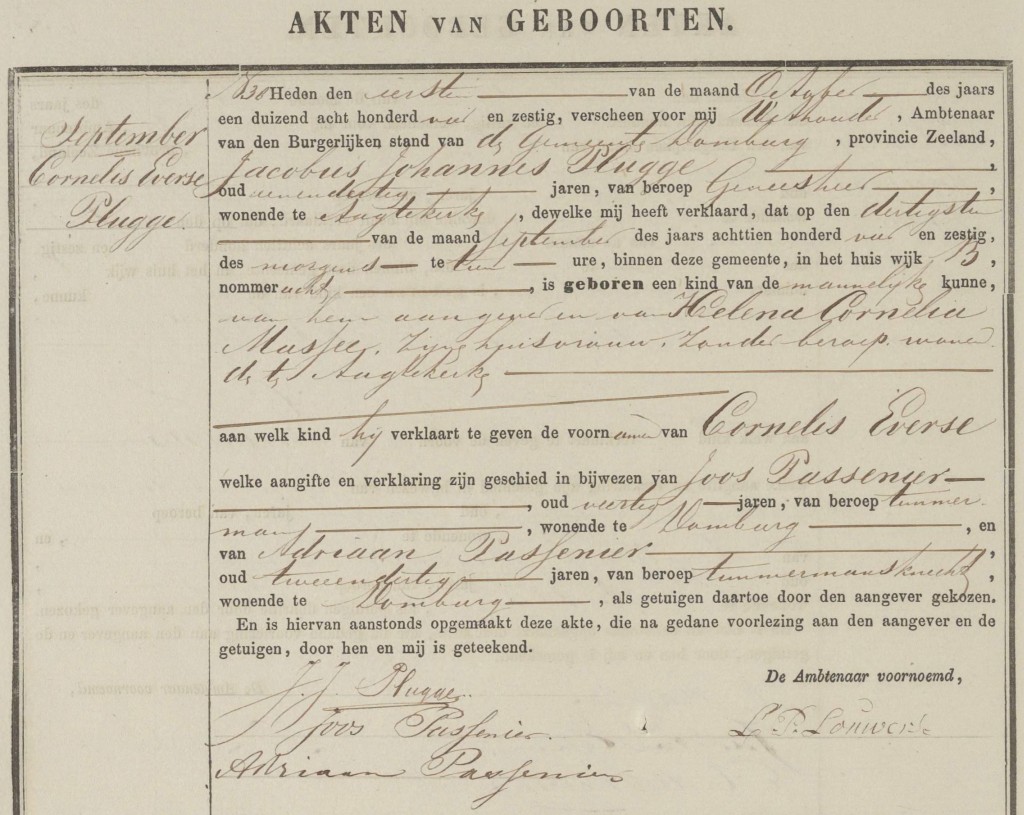 AKTEN VAN GEBOORTEN.
September
Cornelis Everse
Plugge.
No 30 Heden den eersten van de maand October des jaars
een duizend acht honderd vier en zestig, verscheen voor mij Wethouder, Ambtenaar
van den Burgerlijken stand van de Gemeente Domburg, provincie Zeeland,
Jacobus Johannes Plugge,
oud eenendertig jaren, van beroep Geneesheer,
wonende te Aagtekerke, dewelke mij heeft verklaard, dat op den dertigsten
van de maand September des jaars achttien honderd vier en zestig,
des morgens te tien ure, binnen deze gemeente, in het huis wijk B,
nommer acht, is geboren een kind van de mannelijke kunne,
van hem aangever en van Helena Cornelia
Massee, zijne huisvrouw, zonder beroep, wonen
de te Aagtekerke
aan welk kind hij verklaart te geven de voornamen van Cornelis Everse
welke aangifte en verklaring zijn geschied in bijwezen van Joos Passenier
, oud veertig jaren, van beroep timmer
man, wonende te Domburg, en
van Adriaan Passenier,
oud tweeendertig jaren, van beroep timmermansknecht,
wonende te Domburg, als getuigen daartoe door den aangever gekozen.
En is hiervan aanstonds opgemaakt deze akte, die na gedane voorlezing aan den aangever en de
getuigen, door hen en mij is geteekend.
De Ambtenaar voornoemd,
J. J. Plugge.
Joos Passenier.
L. P. Louwerse
Adriaan Passenier